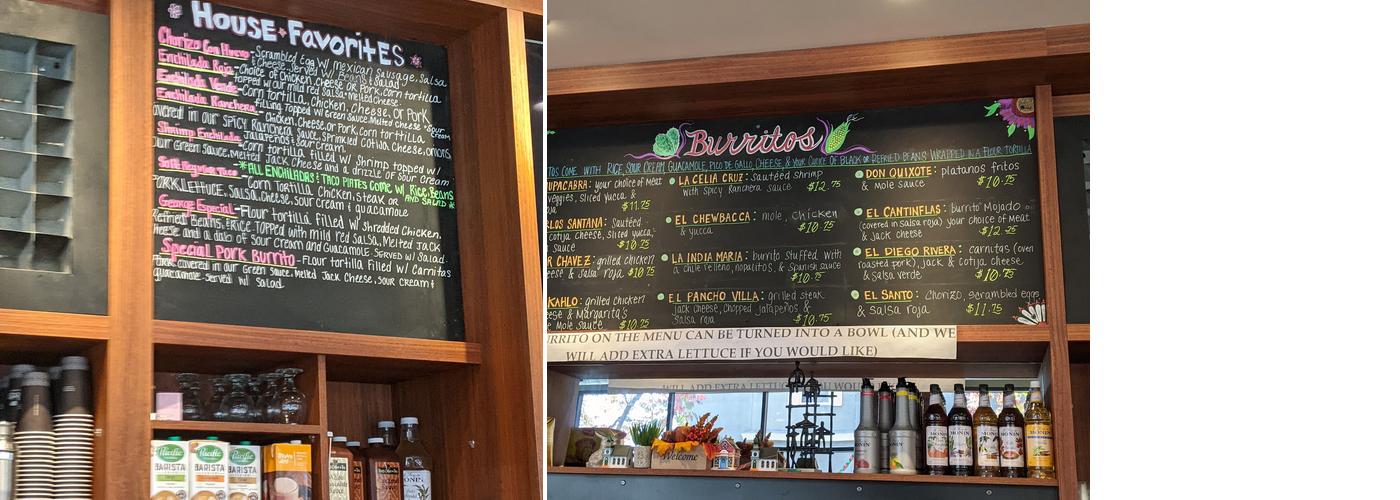 House Favorites
Chorizo Con Huevo - Scrambled Egg w/ Mexican Sausage, Salsa
& Cheese, Served w/ Beans & Salad
Enchilada Roja - Choice of Chicken, Cheese or Pork, Corn tortilla
topped w/ our mild red Salsa & Melted Cheese.
Enchilada Verde - Corn tortilla, Chicken, Cheese, or Pork
filling Topped w/ Green Sauce, Melted Cheese & Sour Cream
Enchilada Ranchera - Chicken, Cheese, or Pork, Corn torttilla
covered in our SPICY Ranchera Sauce, Sprinkled Cotija Cheese, onions,
Jalapeños & Sour Cream.
Shrimp Enchilada - Corn tortilla filled w/ Shrimp topped w/
our Green Sauce, Melted Jack Cheese and a drizzle of Sour Cream
*ALL ENCHILADAS & TACO PLATES COME w/ Rice, Beans
AND SALAD *
Soft Regular Taco - Corn Tortilla, Chicken, Steak or
Pork, Lettuce, Salsa, Cheese, Sour Cream & guacamole
George Especial - Flour tortilla filled w/ Shredded Chicken,
Refried Beans, & Rice TOPPED with mild red Salsa, Melted Jack
Cheese and a dab of Sour Cream and Guacamole Served w/ Salad
Special Pork Burrito - Flour tortilla Filled w/ Carnitas
Pork covered in our Green Sauce, Melted Jack Cheese, Sour Cream &
guacamole served w/ Salad.
Pacific
BARISTA
Pacific
BARISTA
Pacific
BARISTA
Burritos
COME WITH RICE, SOUR CREAM, GUACAMOLE, PICO DE GALLO, CHEESE, & YOUR CHOICE OF BLACK OR REFRIED BEANS WRAPPED IN A FLOUR TORTILLA
UPACABRA: your choice of Meat
veggies, sliced yucca &
$11.75
LOS SANTANA: Sautéed
cotija cheese, sliced yucca,
sauce $10.75
CHAVEZ: grilled chicken
& salsa roja $10.75
KAHLO: grilled chicken
& Margarita's
Mole Sauce $10.75
LA CELIA CRUZ: sautéed shrimp
with Spicy Ranchera sauce $12.75
EL CHEWBACCA: mole, chicken
& yucca $10.75
LA INDIA MARIA: burrito stuffed with
a chile relleno, nopalitos, & Spanish sauce
$10.75
EL PANCHO VILLA: grilled steak
jack cheese, Chopped jalapeños &
Salsa roja $10.75
DON QUIXOTE: platanos fritos
& Mole sauce $10.75
EL CANTINFLAS: burrito Mojado
(covered in salsa roja) your choice of Meat
& Jack cheese $12.25
EL DIEGO RIVERA: carnitas (oven
roasted pork), jack & cotija cheese
& Salsa verde $10.75
EL SANTO: Chorizo, scrambled eggs
& salsa roja $11.75
BURRITO ON THE MENU CAN BE TURNED INTO A BOWL (AND WE
WILL ADD EXTRA LETTUCE IF YOU WOULD LIKE)
Welcome
MONIN
MONIN
MONIN
MONIN
MONIN